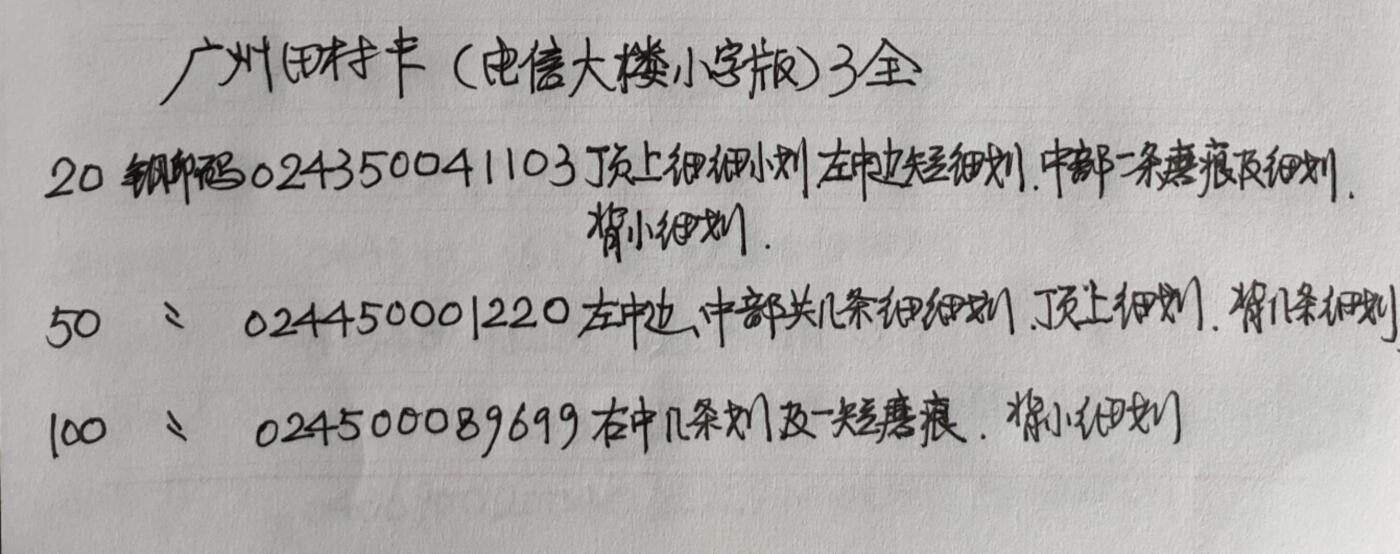 广州田村卡（电信大楼小字版）3全
20 钢印码024350041103顶上细细小划左中边短细划.中部一条磨痕及细划.
背小细划.
50 〃 024450001220左中边、中部共几条细细划、顶上细划.背几条细划
100 〃 024500089699右中几条划及一短磨痕.背小细划